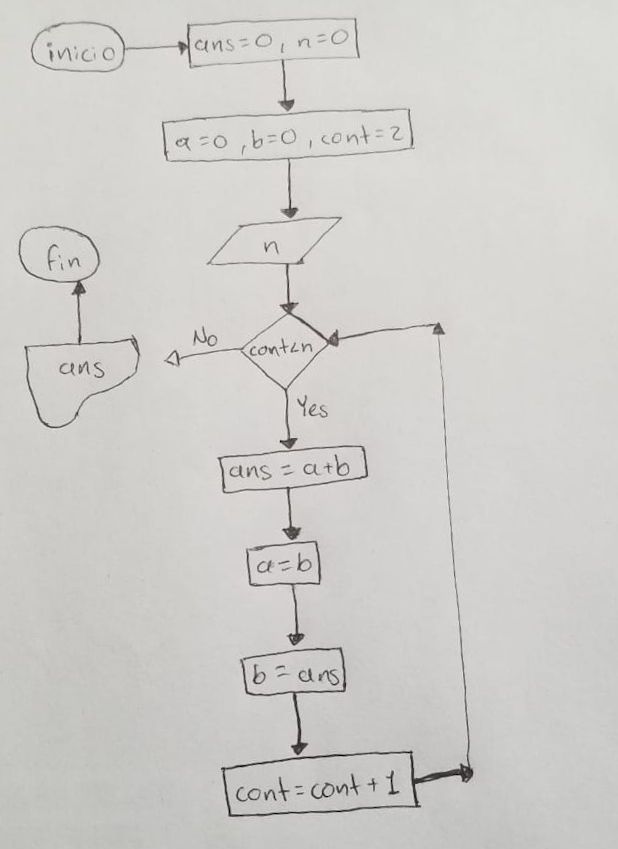 inicio
ans=0, n=0
a=0, b=0, cont=2
n
fin
No
cont<n
ans
Yes
ans = a+b
a=b
b = ans
cont=cont+1